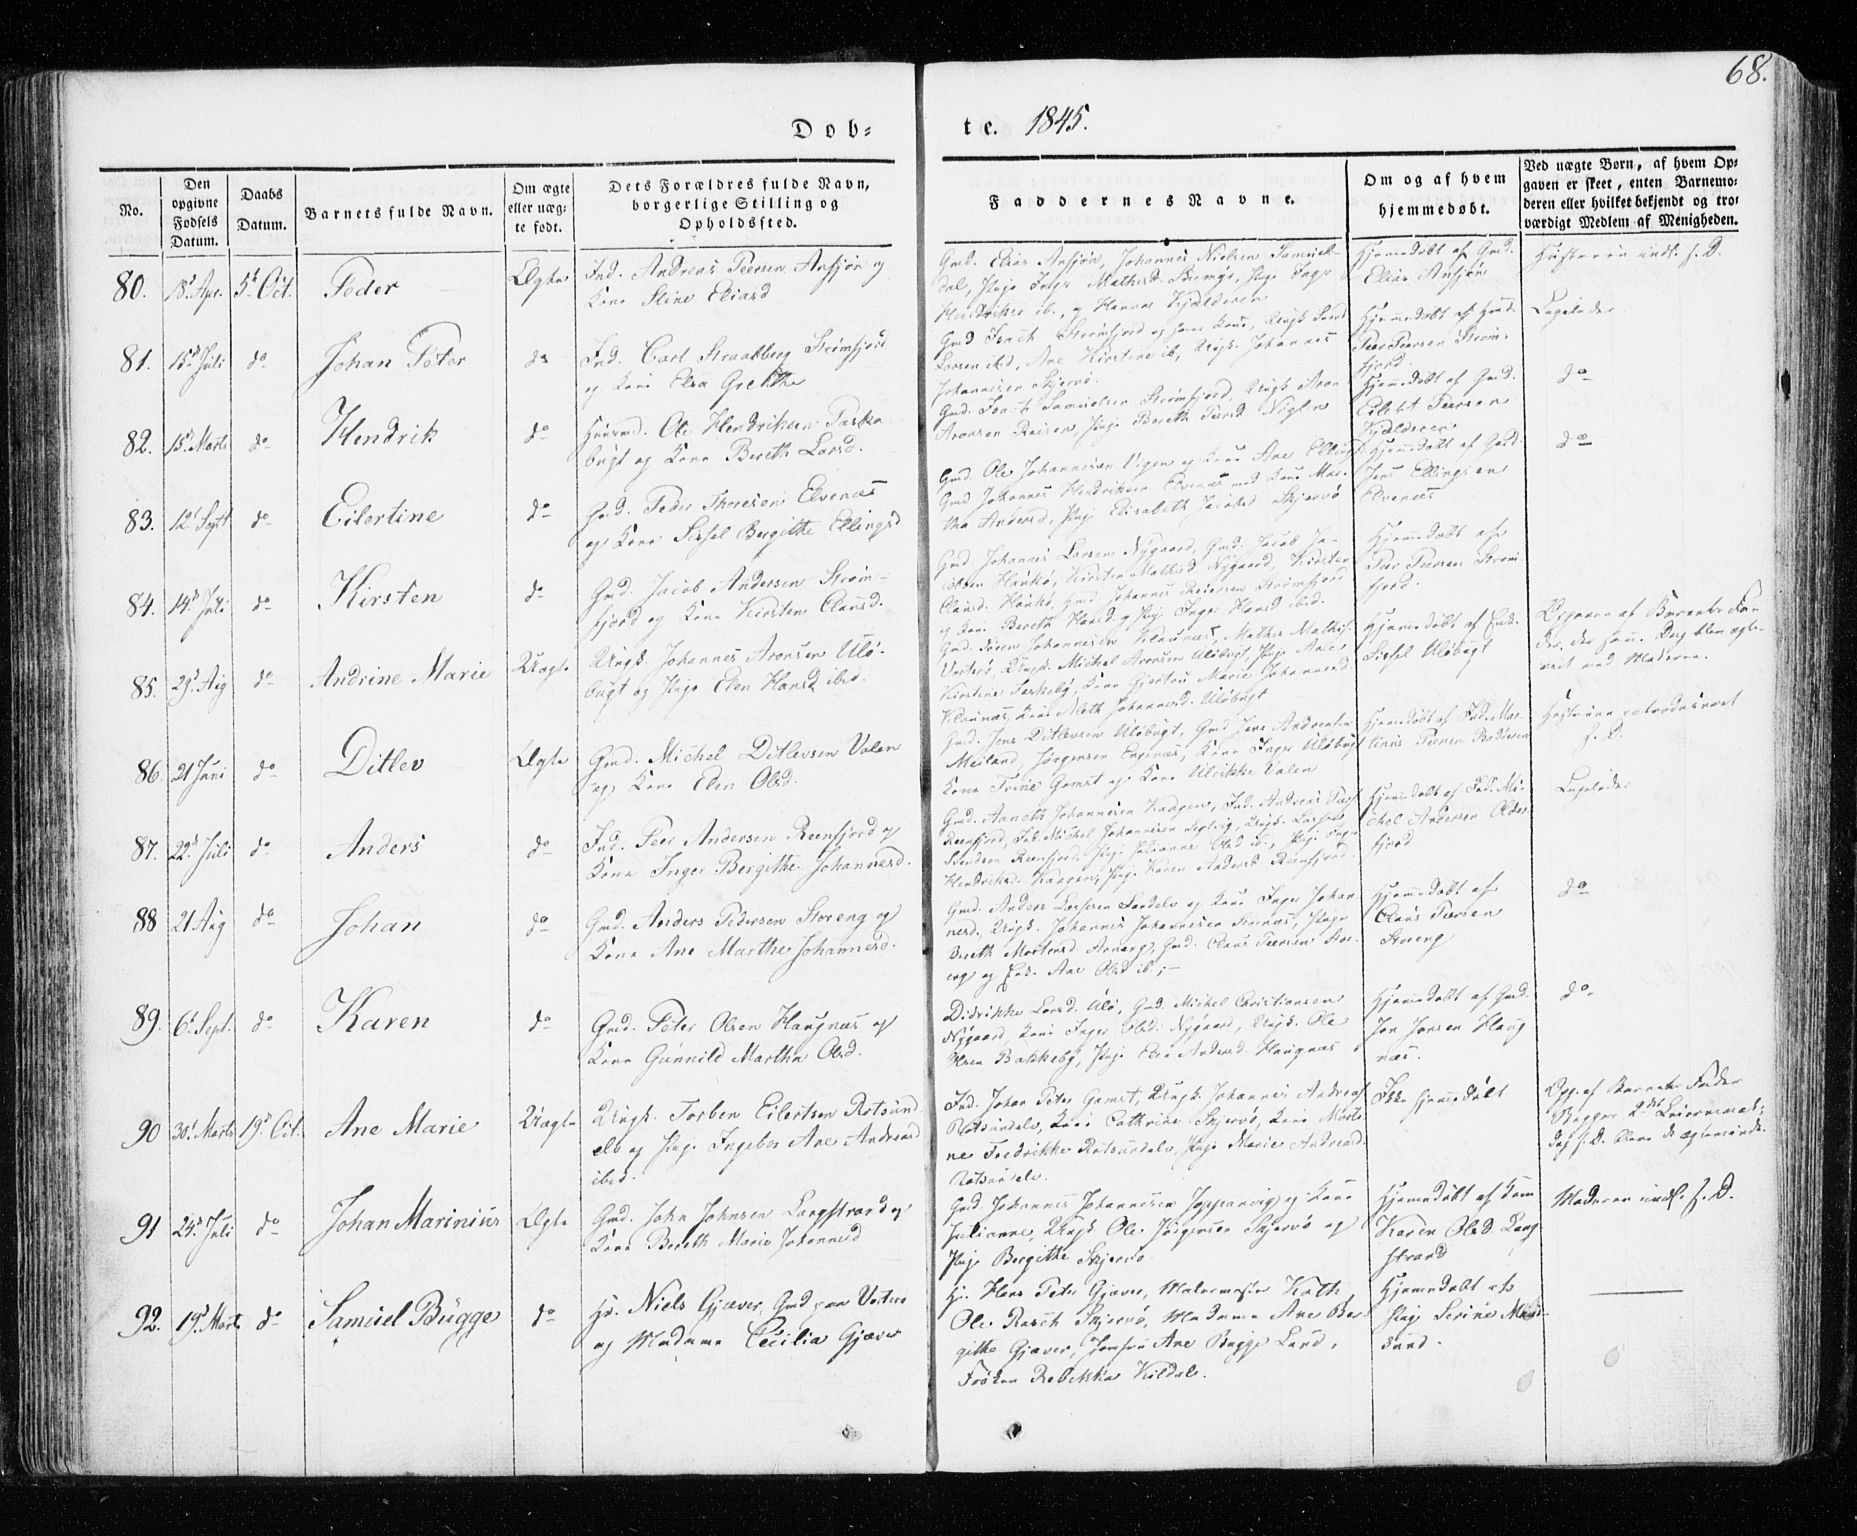 68.
Dob= te. 1845.
No.
Den opgivne Fødsels Datum.
Daabs Datum.
Barnets fulde Navn.
Om ægte eller uægte født.
Dets Forældres fulde Navn, borgerlige Stilling og Opholdssted.
Faddernes Navne.
Om og af hvem hjemmedøbt.
Ved uægte Børn, af hvem Opgaven er skeet, enten Barnemoderen eller hvilket bekjendt og troværdigt Medlem af Menigheden.
80. 18 Apr. 5t Oct. Peder Ægte
Ind. Andreas Peersen Ansjøn og
Kone Stine Eliasd
Gmd. Elias Ansjøn, Johannes Nielsen Samuel-
dal, Pige Inger Mathisd.
Hjemmedøbt af Gmd.
Elias Ansjøn
81. 15d Juli do Johan Peter do
Ind. Carl Straabberg Strømfjord
og Kone Elsa Grethe
Gmd Isach Strømfjord og hans Kone, Ungk.
Larsen ibd, Ane Kirstine ib, Ungk. Johannes
Johannesen Skjervø.
Hjemmedøbt af Gmd.
Peer Peersen Strøm-
fjord
82. 15d Marts do Hendrik do
Huusmd. Ole Hendriksen Taska-
bugt og Kone Bereth Larsd.
Gmd. Isach Samuelsen Strømfjord, Ungk Aron
Aronsen Reisen, Pige Bereth Peersd
Hjemmedøbt af Gmd.
Eilert Peersen
Kjælderen
do
83. 12t Sept do Eilertine do
Gmd. Peder Thoresen Elvenæs
og Kone Sissel Bergithe Ellingsd
Gmd. Ole Johannesen Vigen og Kone Ane Ellingsd
Gmd Johannes Hendriksen Elvenæs med Kone Mar-
tha Andersd, Pige Elisabeth Jacobsd Skjervø
Hjemmedøbt af Gmd
Jens Ellingsen
Elvenæs
do
84. 14d Juli do Kirsten do
Gmd. Jacob Andersen Strøm-
fjord og Kone Kirsten Clausd.
Gmd. Johannes Larsen Nygaard, Gmd. Jacob Ja-
cobsen Haukø, Kirsten Mathisd Nygaard, Kirsten
Clausd. Haukø, Gmd Johannes Peersen Strømfjord
og Kone Bereth Hansd, og Pige Inger Hansd ibid.
Hjemmedøbt af
Peer Peersen Strøm-
fjord.
85. 29d Aug do Andrine Marie Uægte
Ungk. Johannes Aronsen Ulø-
bugt og Pige Elen Hansd ibid.
Gmd. Søren Johannesen Klaunæs, Mathis Mathis.
Vorterø, Ungk. Michel Aronsen Uløbugt, Pige Ane
Kirstine Taskeby, Kone Gjertrud Marie Johannesd
Klaunæs, Kone Aleth Johannesd. Uløbugt
Hjemmedøbt af Enke
Sissel Uløbugt
Opgaven af Barnets Fa-
der, der som. Dag blev ægte-
viet med Moderen.
86. 21 Juni do Ditlev Ægte
Gmd. Michel Ditlevsen Valen
og Kone Elen Olsd.
Gmd. Jens Ditlevsen Uløbugt, Gmd Jens Andersen
Meiland, Jørgensen Engnæs, Kone Inger Uløbugt
Kone Trine Gamst og Kone Ulrikke Valen
87. 22d Juli do Anders do
Ind. Peer Andersen Reenfjord og
Kone Inger Bergithe Johannesd.
Gmd. Aaneth Johannesen Kaagen, Ind. Andreas
Reenfjord, Ind. Michel Johannesen
Hendriksd. Kaagen, Pige Karen Andersd Reenfjord.
Hjemmedøbt af Ind. Mi-
chel Andersen Older-
fjord
88 21 Aug do Johan do
Gmd. Anders Pedersen Storeng og
Kone Ane Marthe Johannesd.
Gmd. Anders Larssen Sandelv og Kone Inger Johan-
nesd., Ungk. Johannes Johannesen
Bereth Mortensd. Storeng, Gmd. Claus Peersen Stor-
eng og Enke Ane Olsd ib.;—
Hjemmedøbt af
Claus Peersen
Storeng
do
89. 6t Sept. do Karen do
Gmd. Peter Olsen Haugnæs og
Kone Gunnild Martha Olsd.
Didrikke Larsd. Ulø, Gmd. Michel Christiansen
Nygaard, Kone Inger Olsd. Nygaard, Ungk. Ole
Olsen Bakkeby, Pige Elen Andersd. Haugnæs
Hjemmedøbt af Gmd.
Jon Jonsen Haug-
næs.
do.
90 30t Marts 19d Oct. Ane Marie Uægte
Ungk. Torben Eilertsen Rotsund-
elv og Pige Ingebor Ane Andreasd
ibid.
Ind. Johan Peter Gamst, Ungk. Johannes Andreas.
Rotsundelv, Kone Cathrine Skjervø, Kone Marti-
ne Fredrikke Rotsundelv, Pige Marie Andreasd.
Rotsundelv.
Ikke hjemmedøbt
Opg. af Barnets Fader
Begges 2det Leiermaal;
91 24d Juli do Johan Marinius Ægte
Gmd. John Johnsen Langstrand og
Kone Bereth Marie Johannesd
Gmd. Johannes Johannesen Joppanvig og Kone
Julianne, Ungk. Ole Jørgensen Skjervø og
Pige Bergithe Skjervø.
Hjemmedøbt af Kone
Karen Olsd. Lang-
strand
Moderen indl. f. D.
92. 19d Marts do Samuel Bugge do
Hr. Niels Gjæver, Gmd paa Vorterø
og Madame Cecilia Gjæver
Hr. Hans Peter Gjæver, Malermester Koth,
Ole Rasch Skjervø, Madame Ane Ber-
githe Gjæver, Jomfru Ane Bugge Lund,
Frøken Rebekka Kildal.
Hjemmedøbt af
Pige Serine Maur-
sund.